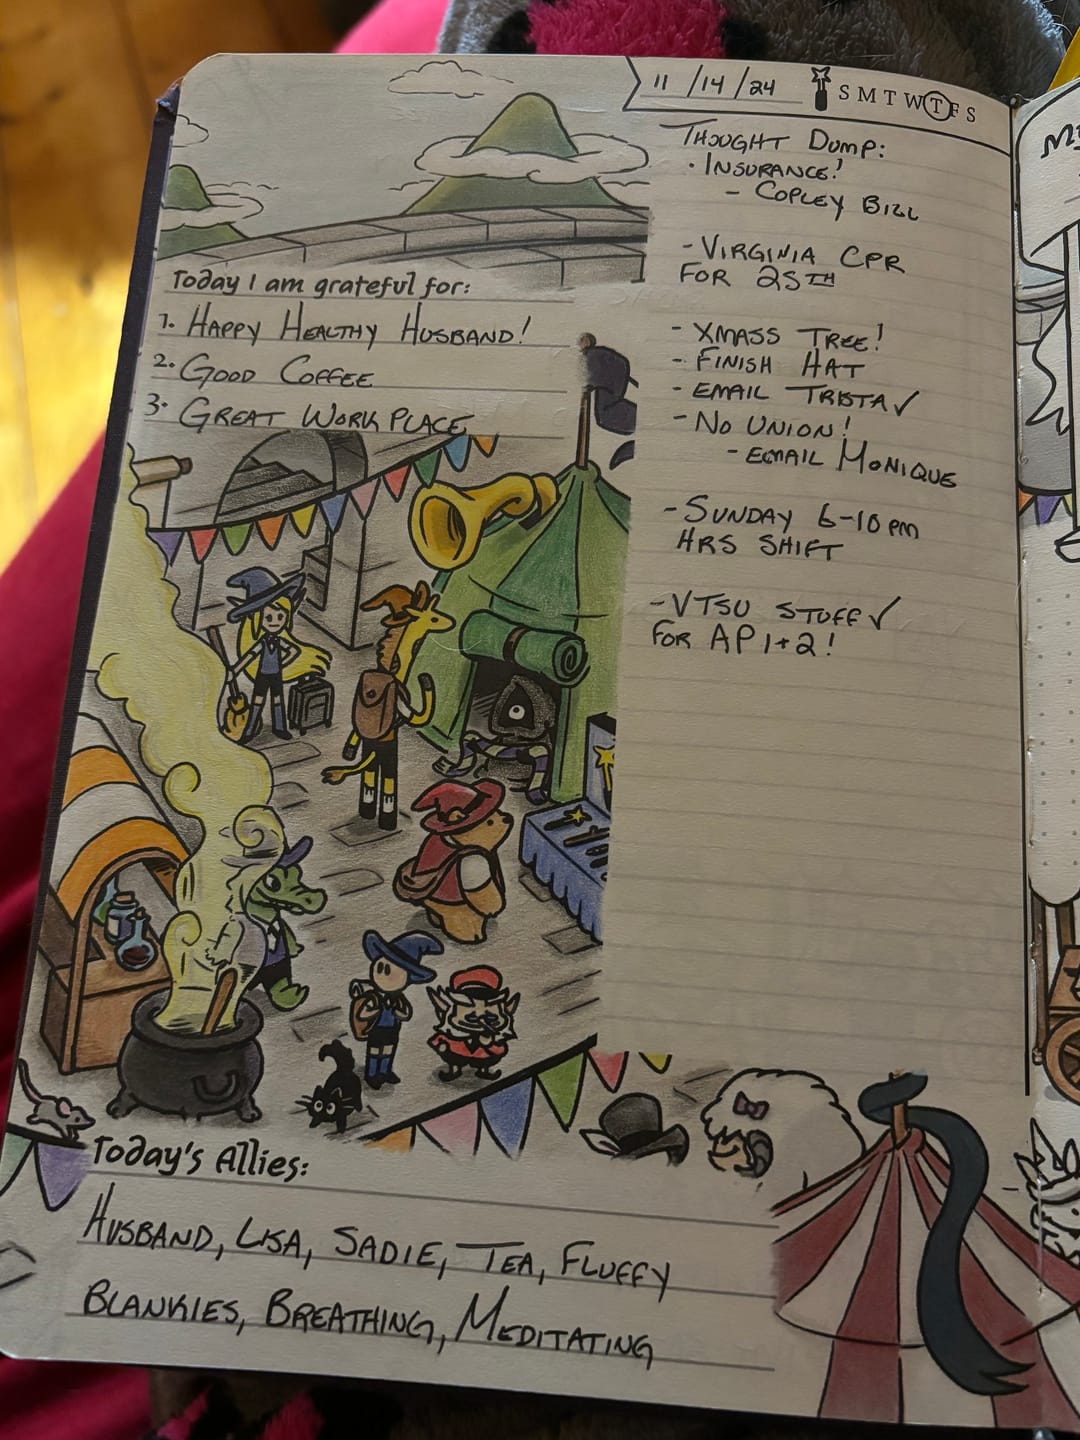 11/14/24 S M T W T F S
Today I am grateful for:
1. Happy Healthy Husband!
2. Good Coffee
3. Great Work Place
Thought Dump:
· Insurance!
- Copley Bill
- Virginia CPR
for 25th
- Xmass Tree!
- Finish Hat
- Email Trista ✓
- No Union!
- Email Monique
- Sunday 6-10pm
Hrs Shift
- VTSU Stuff ✓
for AP 1+2!
Today's Allies:
Husband, Lisa, Sadie, Tea, Fluffy
Blankies, Breathing, Meditating